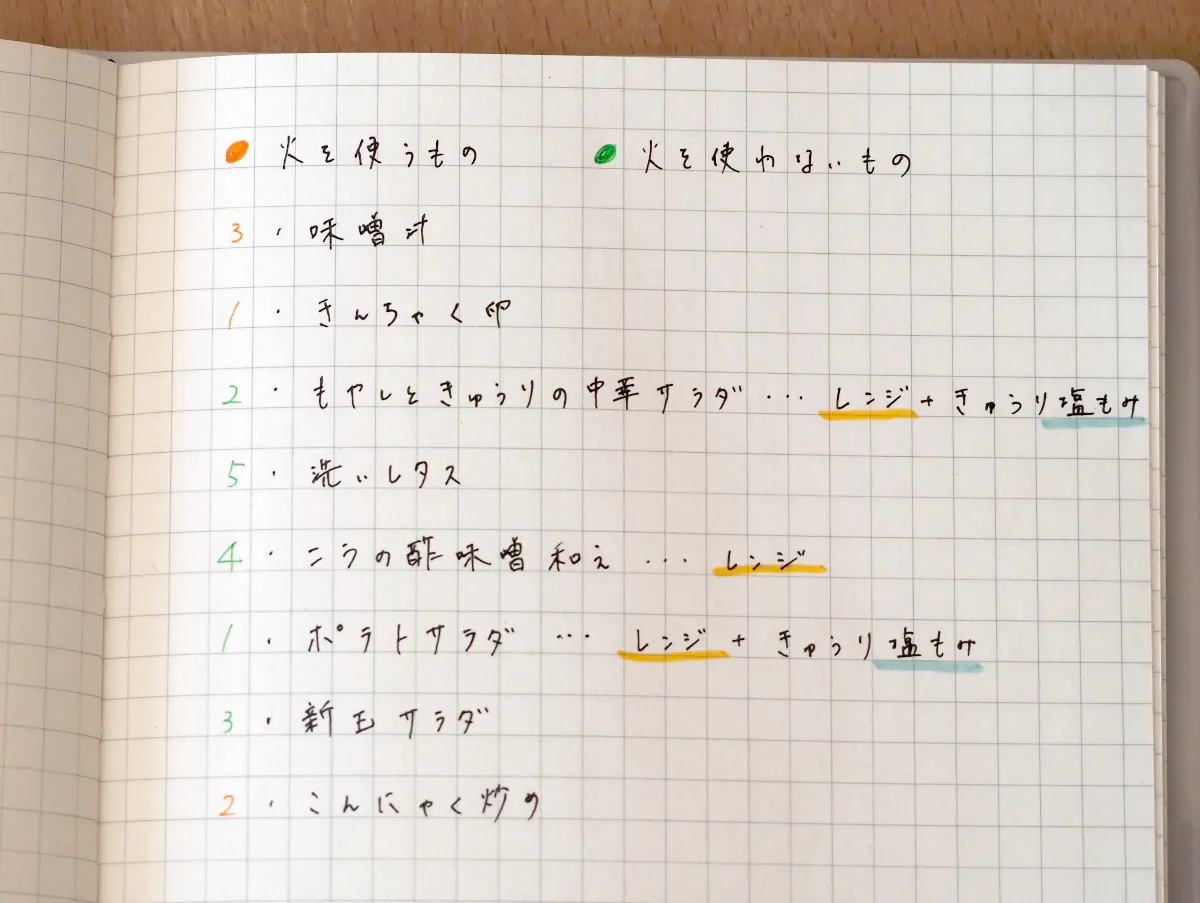 ● 火を使うもの ● 火を使わないもの
3 ・ 味噌汁
1 ・ きんちゃく卵
2 ・ もやしときゅうりの中華サラダ … レンジ + きゅうり塩もみ
5 ・ 洗いレタス
4 ・ こうの酢味噌和え … レンジ
1 ・ ポテトサラダ … レンジ + きゅうり塩もみ
3 ・ 新玉サラダ
2 ・ こんにゃく炒め